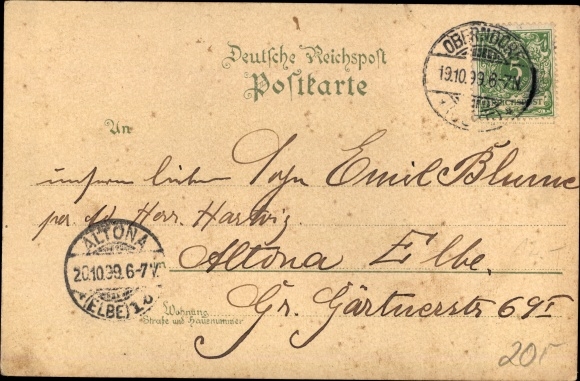 Deutsche Reichspost
Postkarte
OBERNDORF
19.10.99.6-7N
5
REICHSPOST
An
unsern lieben Sohn Emil Blume
per Ad Herr Hartwig
Altona Elbe.
Gr. Gärtnerstr 69 I
ALTONA
20.10.99.6-7V.
(ELBE) 1
Wohnung
Straße und Hausnummer
20,-